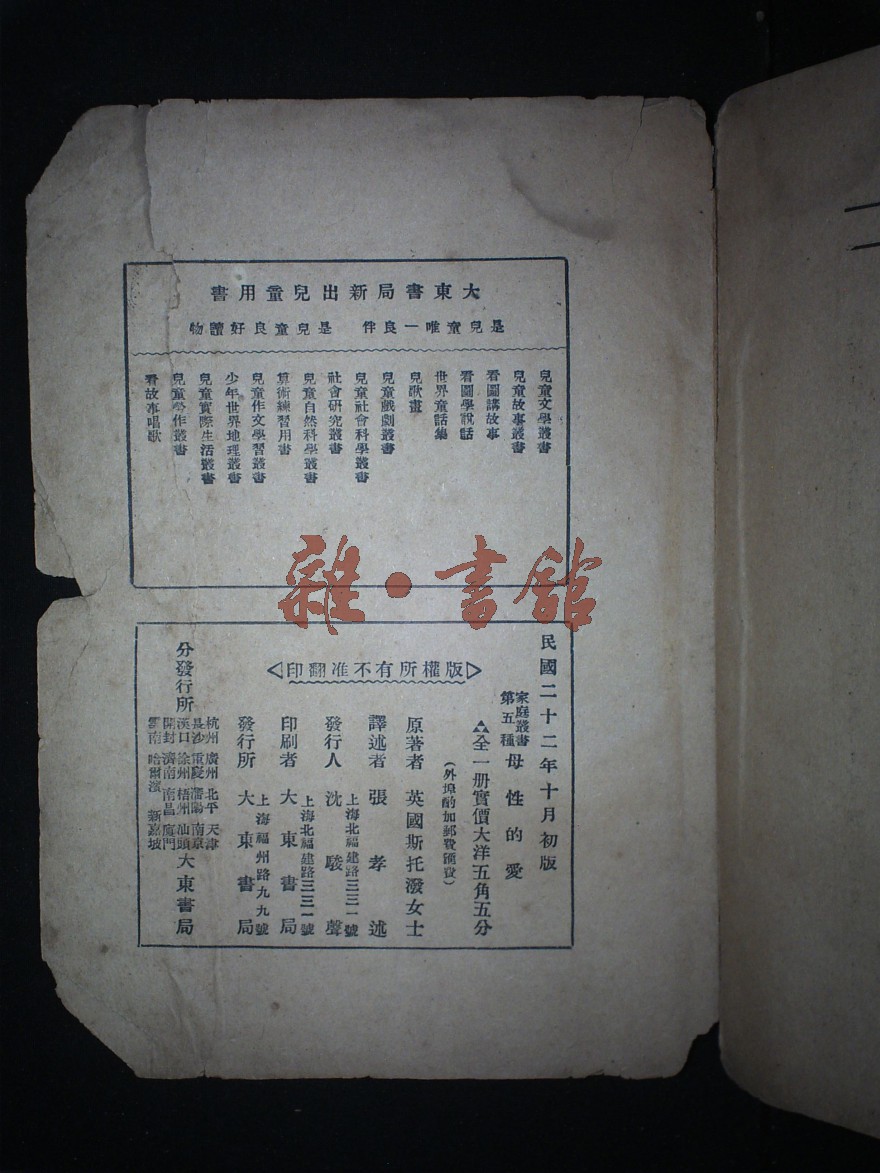 大東書局新出兒童用書
是兒童唯一良伴　是兒童良好讀物
兒童文學叢書
兒童故事叢書
看圖講故事
看圖學說話
世界童話集
兒歌畫
兒童戲劇叢書
兒童社會科學叢書
社會研究叢書
兒童自然科學叢書
算術練習用書
兒童作文學習叢書
少年世界地理叢書
兒童實際生活叢書
兒童勞作叢書
看故事唱歌
雜·書館
民國二十二年十月初版
家庭叢書第五種　母性的愛
全一册實價大洋五角五分
(外埠酌加郵費滙費)
▷版權所有不准翻印◁
原著者　英國斯托潑女士
譯述者　張孝述
發行人　沈駿聲
上海北福建路三三一號
印刷者　大東書局
上海北福建路三三一號
發行所　大東書局
上海福州路九九號
分發行所
杭州　廣州　北平　天津
長沙　重慶　瀋陽　南京
漢口　徐州　梧州　汕頭
開封　濟南　南昌　廈門
雲南　哈爾濱　新嘉坡
大東書局